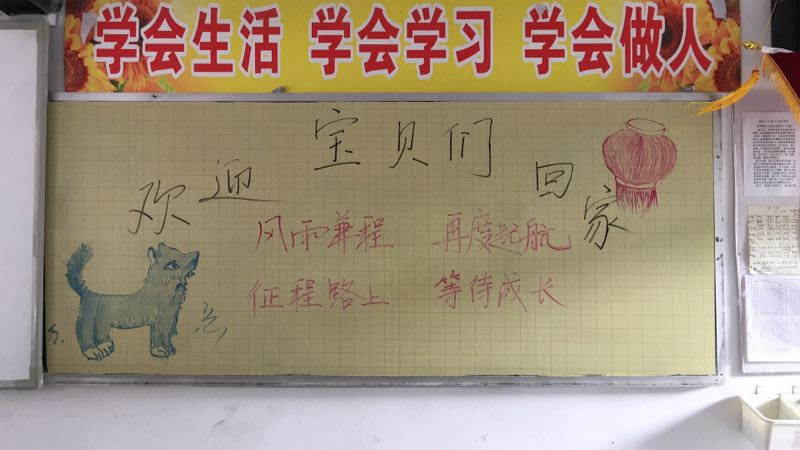 学会生活 学会学习 学会做人
欢迎宝贝们回家
风雨兼程 再度起航
征程路上 等待成长